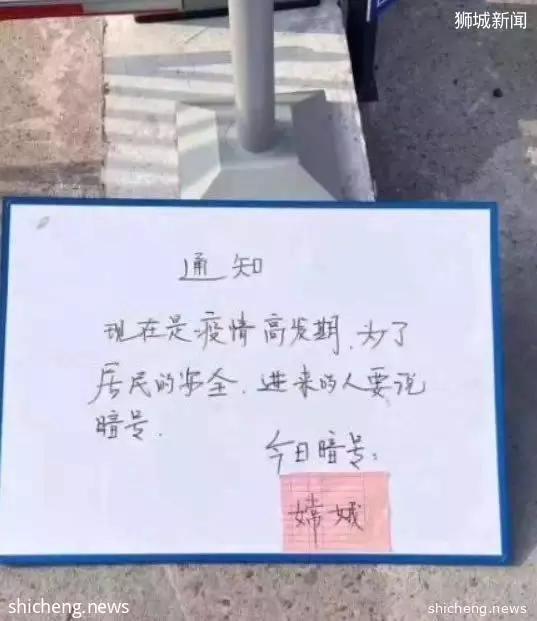 狮城新闻
通知
现在是疫情高发期、为了
居民的安全、进来的人要说
暗号.
今日暗号:
嫦娥
shicheng.news
shicheng.news